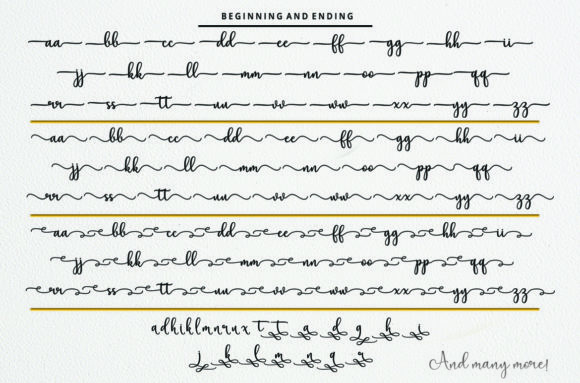 BEGINNING AND ENDING
aa bb cc dd ee ff gg hh ii
jj kk ll mm nn oo pp qq
rr ss tt uu vv ww xx yy zz
aa bb cc dd ee ff gg hh ii
jj kk ll mm nn oo pp qq
rr ss tt uu vv ww xx yy zz
aa bb cc dd ee ff gg hh ii
jj kk ll mm nn oo pp qq
rr ss tt uu vv ww xx yy zz
a d h i k l m n r u x t t a d g h i
j k l m n q r
And many more!